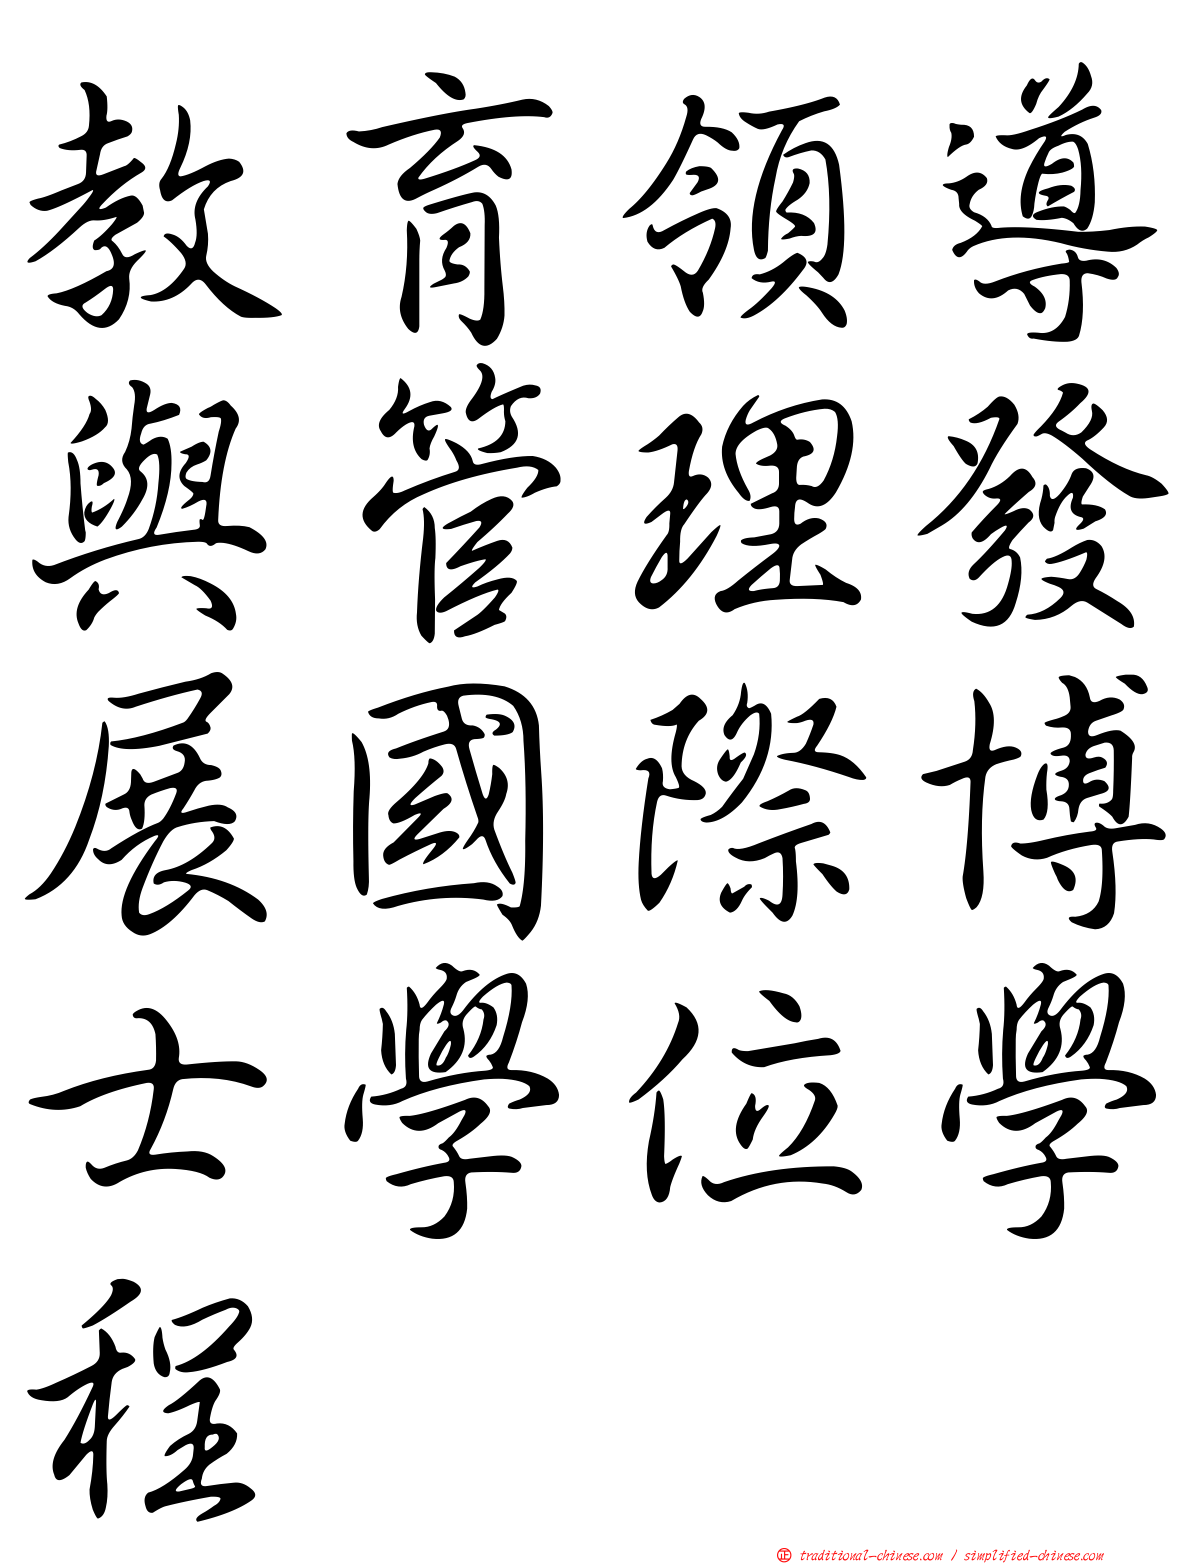 教育領導
與管理發
展國際博
士學位學
程
正 traditional-chinese.com / simplified-chinese.com